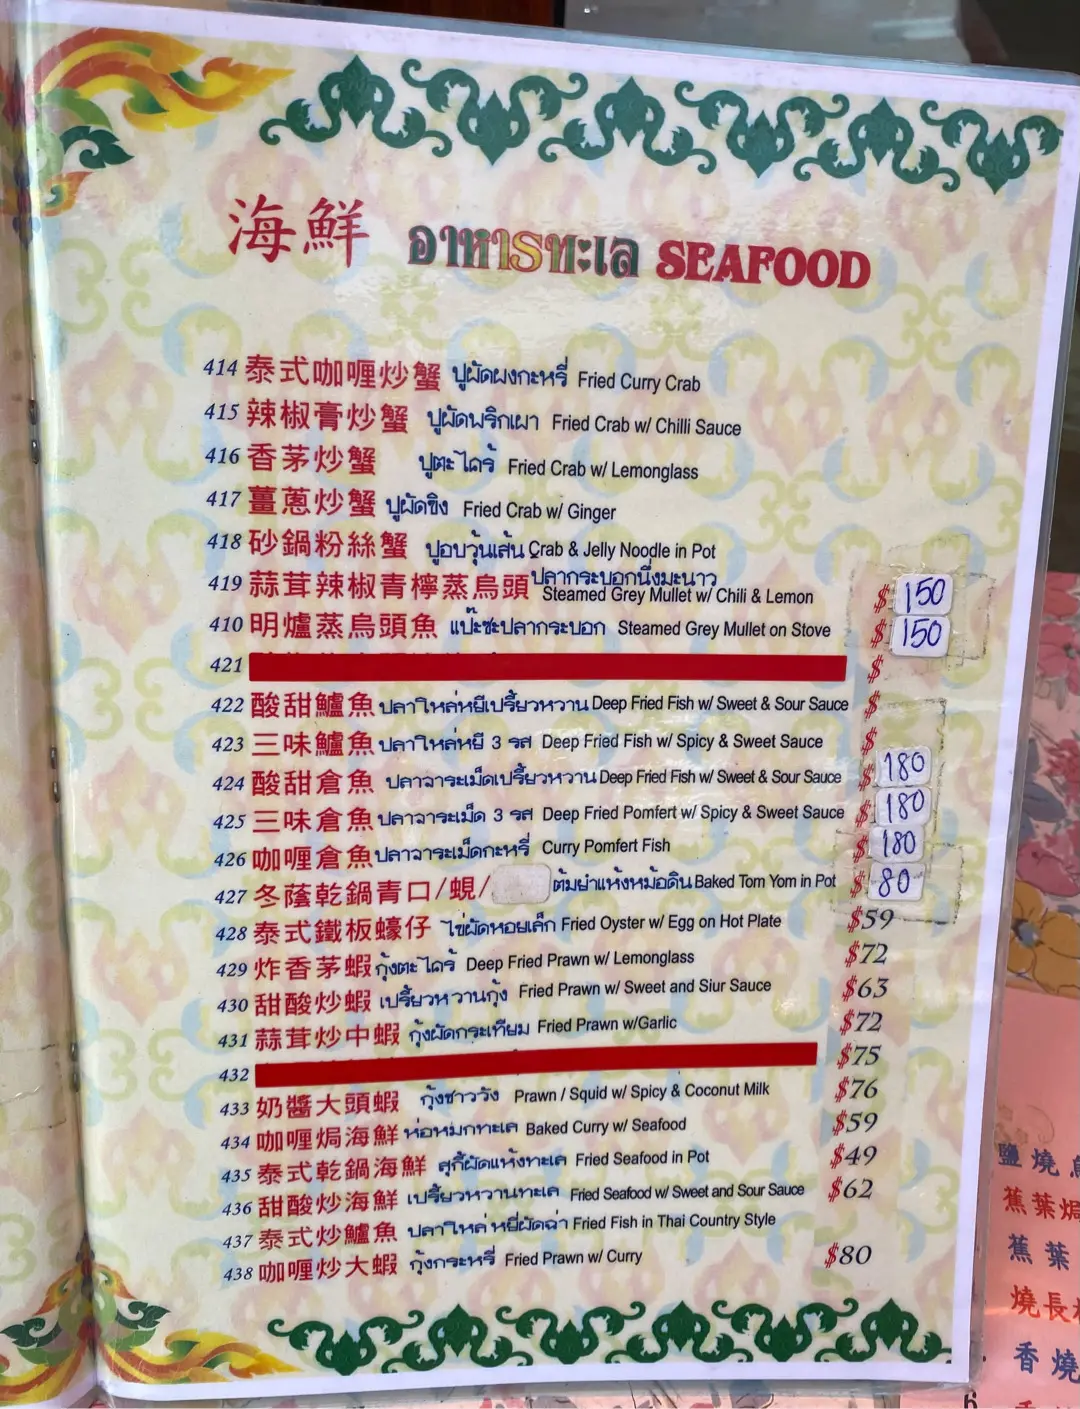 海鮮 อาหารทะเล SEAFOOD
414 泰式咖喱炒蟹 ปูผัดผงกะหรี่ Fried Curry Crab
415 辣椒膏炒蟹 ปูผัดพริกเผา Fried Crab w/ Chilli Sauce
416 香茅炒蟹 ปูตะไคร้ Fried Crab w/ Lemonglass
417 薑蔥炒蟹 ปูผัดขิง Fried Crab w/ Ginger
418 砂鍋粉絲蟹 ปูอบวุ้นเส้น Crab & Jelly Noodle in Pot
419 蒜茸辣椒青檸蒸烏頭 ปลากระบอกนึ่งมะนาว Steamed Grey Mullet w/ Chili & Lemon $ 150
410 明爐蒸烏頭魚 แป๊ะซะปลากระบอก Steamed Grey Mullet on Stove $ 150
421 $
422 酸甜鱸魚 ปลาใหล่หยีเปรี้ยวหวาน Deep Fried Fish w/ Sweet & Sour Sauce $
423 三味鱸魚 ปลาใหล่หยี 3 รส Deep Fried Fish w/ Spicy & Sweet Sauce $
424 酸甜倉魚 ปลาจาระเม็ดเปรี้ยวหวาน Deep Fried Fish w/ Sweet & Sour Sauce $ 180
425 三味倉魚 ปลาจาระเม็ด 3 รส Deep Fried Pomfert w/ Spicy & Sweet Sauce $ 180
426 咖喱倉魚 ปลาจาระเม็ดกะหรี่ Curry Pomfert Fish $ 180
427 冬蔭乾鍋青口/蜆/ ต้มยำแห้งหม้อดิน Baked Tom Yom in Pot $ 80
428 泰式鐵板蠔仔 ไข่ผัดหอยเล็ก Fried Oyster w/ Egg on Hot Plate $59
429 炸香茅蝦 กุ้งตะไคร้ Deep Fried Prawn w/ Lemonglass $72
430 甜酸炒蝦 เปรี้ยวหวานกุ้ง Fried Prawn w/ Sweet and Siur Sauce $63
431 蒜茸炒中蝦 กุ้งผัดกระเทียม Fried Prawn w/Garlic $72
432 $75
433 奶醬大頭蝦 กุ้งชาววัง Prawn / Squid w/ Spicy & Coconut Milk $76
434 咖喱焗海鮮 ห่อหมกทะเล Baked Curry w/ Seafood $59
435 泰式乾鍋海鮮 สุกี้ผัดแห้งทะเล Fried Seafood in Pot $49
436 甜酸炒海鮮 เปรี้ยวหวานทะเล Fried Seafood w/ Sweet and Sour Sauce $62
437 泰式炒鱸魚 ปลาใหล่หยีผัดฉ่า Fried Fish in Thai Country Style
438 咖喱炒大蝦 กุ้งกระหรี่ Fried Prawn w/ Curry $80
鹽燒
蕉葉焗
蕉葉
燒長
香燒
6